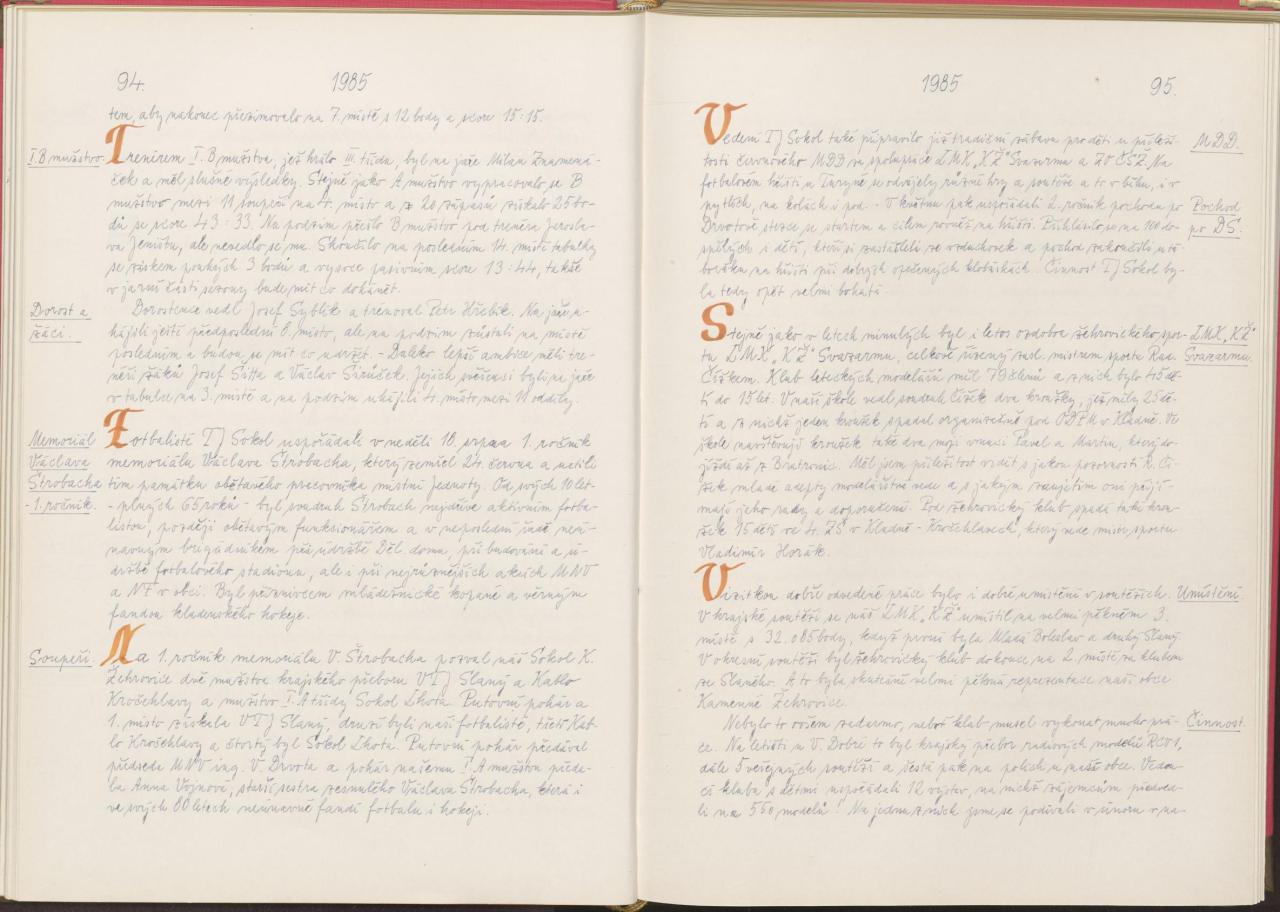 94.
1985
tem, aby nakonec přezimovalo na 7. místě s 12 body a score 15:15.
I.B mužstvo.
Trenérem I.B mužstva, jež hrálo III. třídu, byl na jaře Milan Znamená-
ček a měl slušné výsledky. Stejně jako A mužstvo vypracovalo se B
mužstvo mezi 11 soupeři na 4. místo a z 20 zápasů získalo 25 bo-
dů se score 43:33. Na podzim přešlo B mužstvo pod trenéra Jarosla-
va Jemiütu, ale nevedlo se mu. Skončilo na posledním 14. místě tabulky
se ziskem pouhých 3 bodů a vysoce pasivním score 13:44, takže
v jarní části sezony bude mít co dohánět.
Dorost a
žáci.
Dorostence vedl Josef Syblík a trénoval Petr Hřebík. Na jaře u-
hájili ještě předposlední 6. místo, ale na podzim zůstali na místě
posledním a budou se mít co udržet. - Daleko lepší ambice měli tre-
néři žáků Josef Sitta a Václav Sirůček. Jejich svěřenci byli na jaře
v tabulce na 3. místě a na podzim uhájili 4. místo mezi 11 oddíly.
Memoriál
Václava
Štrobacha
- 1. ročník.
Fotbalisté TJ Sokol uspořádali v neděli 18. srpna 1. ročník
memoriálu Václava Štrobacha, který zemřel 24. června a uctili
tím památku obětavého pracovníka místní jednoty. Od svých 10 let-
- plných 65 roků - byl soudruh Štrobach nejdříve aktivním fotba-
listou, později obětavým funkcionářem a v neposlední řadě neú-
navným brigádníkem při údržbě Děl. domu, při budování a ú-
držbě fotbalového stadionu, ale i při nejrůznějších akcích MNV
a NF v obci. Byl příznivcem mládežnické kopané a věrným
fandou kladenského hokeje.
Soupeři.
Na 1. ročník memoriálu V. Štrobacha pozval náš Sokol K.
Žehrovice dvě mužstva krajského přeboru VTJ Slaný a Kablo
Kročehlavy a mužstvo I.A třídy Sokol Lhota. Putovní pohár a
1. místo získala VTJ Slaný, druzí byli naši fotbalisté, třetí Kab-
lo Kročehlavy a čtvrtý byl Sokol Lhota. Putovní pohár předával
předseda MNV ing. V. Drvota a pohár našemu I.A mužstvu předa-
la Anna Vojnová, starší sestra zesnulého Václava Štrobacha, která i
ve svých 80 letech neúnavně fandí fotbalu i hokeji.
1985
95.
Vedení TJ Sokol také připravilo již tradiční zábavu pro děti u příleži-
MDD.
tosti červnového MDD ve spolupráci LMK „KŽ" Svazarmu a ZO ČSŽ. Na
fotbalovém hřišti u Turyně se odvíjely různé hry a soutěže a to v běhu, i v
pytlích, na kolách i pod. - V květnu pak uspořádali 2. ročník pochodu po
Pochod
po DS.
Drvotově stezce se startem a cílem rovněž na hřišti. Přihlásilo se na 100 do-
spělých i dětí, kteří si zastříleli ze vzduchovek a pochod zakončili u tá-
boráku na hřišti při dobrých opečených klobáskách. Činnost TJ Sokol by-
la tedy opět velmi bohatá.
Stejně jako v letech minulých byl i letos ozdobou žehrovického spor-
LMK „KŽ"
Svazarmu.
tu LMK „KŽ" Svazarmu, celkově řízený zasl. mistrem sportu Rad.
Čížkem. Klub leteckých modelářů měl 79 členů a z nich bylo 45 dě-
tí do 15 let. V naší škole vedl soudruh Čížek dva kroužky, jež měly 25 dě-
tí a z nichž jeden kroužek spadal organizačně pod ODPM v Kladně. Ve
škole navštěvují kroužek také dva moji vnuci Pavel a Martin, kteří do-
jíždí až z Bratronic. Měl jsem příležitost vidět s jakou pozorností R. Čí-
žek mladé adepty modelářství vede a s jakým zaujetím oni přijí-
mají jeho rady a doporučení. Pod žehrovický klub spadá také krou-
žek 15 dětí ve 4. ZŠ v Kladně - Kročehlavech, který vede mistr sportu
Vladimír Horák.
Vizitkou dobře odvedené práce bylo i dobré umístění v soutěžích.
Umístění
V krajské soutěži se náš LMK „KŽ" umístil na velmi pěkném 3.
místě s 32.085 body, když první byla Mladá Boleslav a druhý Slaný.
V okresní soutěži byl žehrovický klub dokonce na 2. místě za klubem
ze Slaného. A to byla skutečně velmi pěkná reprezentace naší obce
Kamenné Žehrovice.
Nebylo to ovšem zadarmo, neboť klub musel vykonat mnoho prá-
Činnost.
ce. Na letišti u V. Dobré to byl krajský přebor radiových modelů RCV1,
dále 5 veřejných soutěží a šestá pak na polích u naší obce. Vedou-
cí klubu s dětmi uspořádali 12 výstav, na nichž zájemcům předved-
li na 550 modelů! Na jednu z nich jsme se podívali v únoru v na-